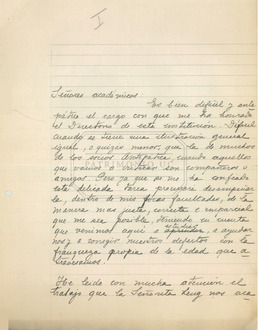 I
Señores académicos
Es bien difícil y ante
pático el cargo con que me ha honrado
el Directorio de esta institución. Difícil
cuando se tiene una ilustración general
igual, o quizás menor, que la de muchos
de los socios. Antipático, cuando aquellos
que vamos a criticar son compañeros o
amigos. Pero ya que se me ha confiado
esta delicada tarea procuraré desempeñar
la, dentro de mis facultades, de la
manera mas justa, correcta e imparcial
que me sea posible, teniendo en cuenta
que venimos aquí a estudiar, a ayudar
nos y a corregir nuestros defectos con la
franqueza propia de la edad que a
travesamos.
He leido con mucha atención el
trabajo que la Señorita nos aca